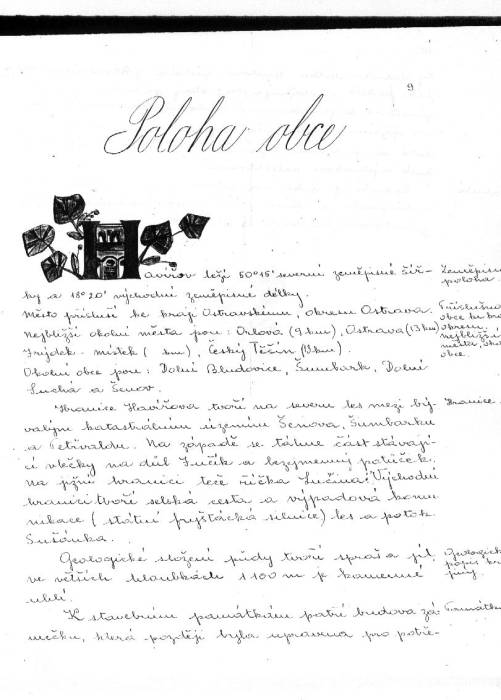 9
Poloha obce
Havířov leží 50°15' severní zeměpisné šíř-
ky a 18°20' východní zeměpisné délky.
Zeměpisná
poloha.
Město přísluší ke kraji Ostravskému, okresu Ostrava.
Nejbližší okolní města jsou: Orlová (9 km), Ostrava (13 km)
Frýdek-Místek ( km), Český Těšín (13 km).
Okolní obce jsou: Dolní Bludovice, Šumbark, Dolní
Suchá a Šenov.
obce ke
okresu
nejbližší
města,
obce.
Hranice Havířova tvoří na severu les mezi bý-
valým katastrálním územím Šenova, Šumbarku
a Petřvaldu. Na západě se táhne část stávají-
cí vlečky na důl Sučík a bezejmenný potůček.
Na jižní hranici teče říčka Lučina. Východní
hranici tvoří selská cesta a výpadová komu
nikace (státní fryštácká silnice) les a potok
Sušanka.
Hranice.
Geologické složení půdy tvoří spraš a jíl,
ve větších hloubkách 1100 m je kamenné
uhlí.
Geologick
popis
K stavebním památkám patří budova zá-
mečku, která později byla upravena pro potře-
Památk